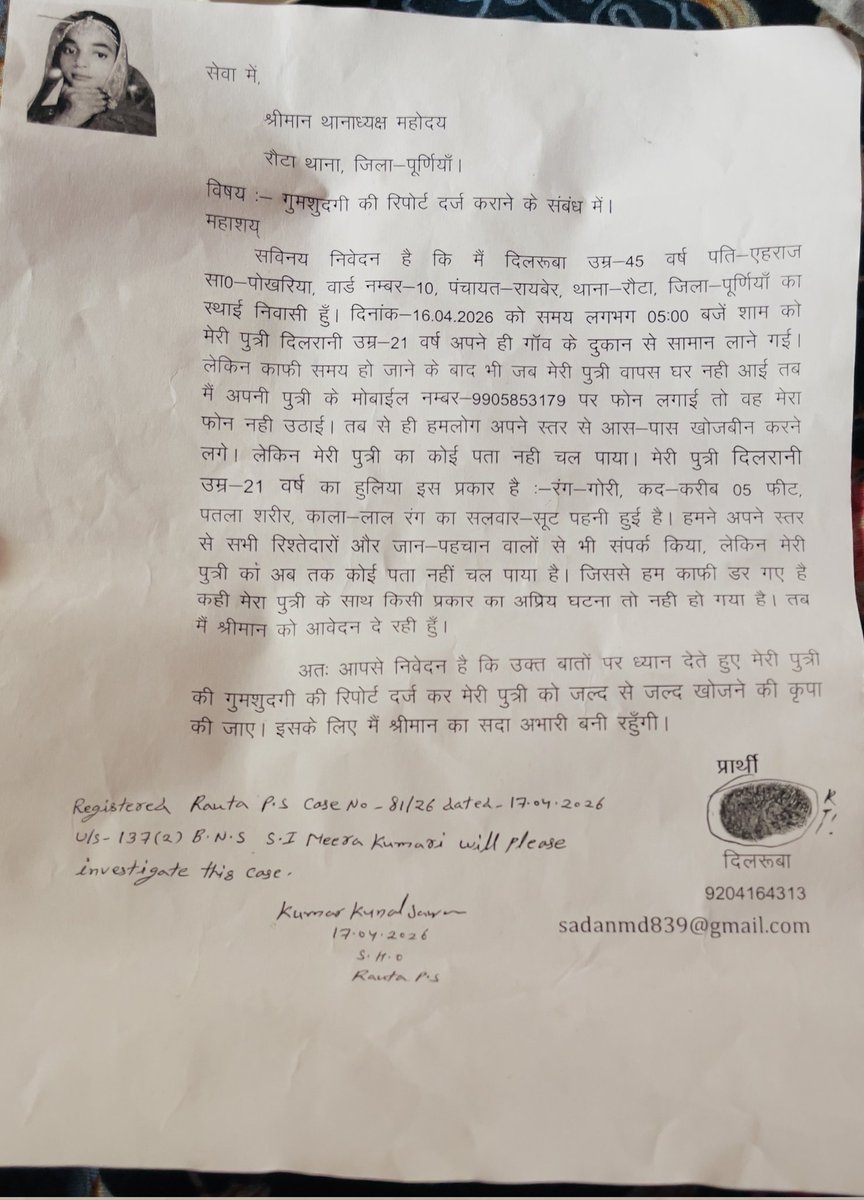 सेवा में,
श्रीमान थानाध्यक्ष महोदय
रौटा थाना, जिला–पूर्णियाँ।
विषय :– गुमशुदगी की रिपोर्ट दर्ज कराने के संबंध में।
महाशय्
सविनय निवेदन है कि मैं दिलरूबा उम्र–45 वर्ष पति–एहराज
सा0–पोखरिया, वार्ड नम्बर–10, पंचायत–रायबेर, थाना–रौटा, जिला–पूर्णियाँ का
स्थाई निवासी हुँ। दिनांक–16.04.2026 को समय लगभग 05:00 बजें शाम को
मेरी पुत्री दिलरानी उम्र–21 वर्ष अपने ही गॉव के दुकान से सामान लाने गई।
लेकिन काफी समय हो जाने के बाद भी जब मेरी पुत्री वापस घर नही आई तब
मैं अपनी पुत्री के मोबाईल नम्बर–9905853179 पर फोन लगाई तो वह मेरा
फोन नही उठाई। तब से ही हमलोग अपने स्तर से आस–पास खोजबीन करने
लगे। लेकिन मेरी पुत्री का कोई पता नही चल पाया। मेरी पुत्री दिलरानी
उम्र–21 वर्ष का हुलिया इस प्रकार है :–रंग–गोरी, कद–करीब 05 फीट,
पतला शरीर, काला–लाल रंग का सलवार–सूट पहनी हुई है। हमने अपने स्तर
से सभी रिश्तेदारों और जान–पहचान वालों से भी संपर्क किया, लेकिन मेरी
पुत्री कां अब तक कोई पता नहीं चल पाया है। जिससे हम काफी डर गए है
कही मेरा पुत्री के साथ किसी प्रकार का अप्रिय घटना तो नही हो गया है। तब
मैं श्रीमान को आवेदन दे रही हुँ।
अतः आपसे निवेदन है कि उक्त बातों पर ध्यान देते हुए मेरी पुत्री
की गुमशुदगी की रिपोर्ट दर्ज कर मेरी पुत्री को जल्द से जल्द खोजने की कृपा
की जाए। इसके लिए मैं श्रीमान का सदा अभारी बनी रहुँगी।
प्रार्थी
R
T!
दिलरूबा
9204164313
sadanmd839@gmail.com
Registered Rauta P.S Case No - 81/26 dated - 17.04.2026
U/s - 137(2) B.N.S S.I Meera Kumari will please
investigate this case.
Kumar Kunal
17.04.2026
S.H.O
Rauta P.S